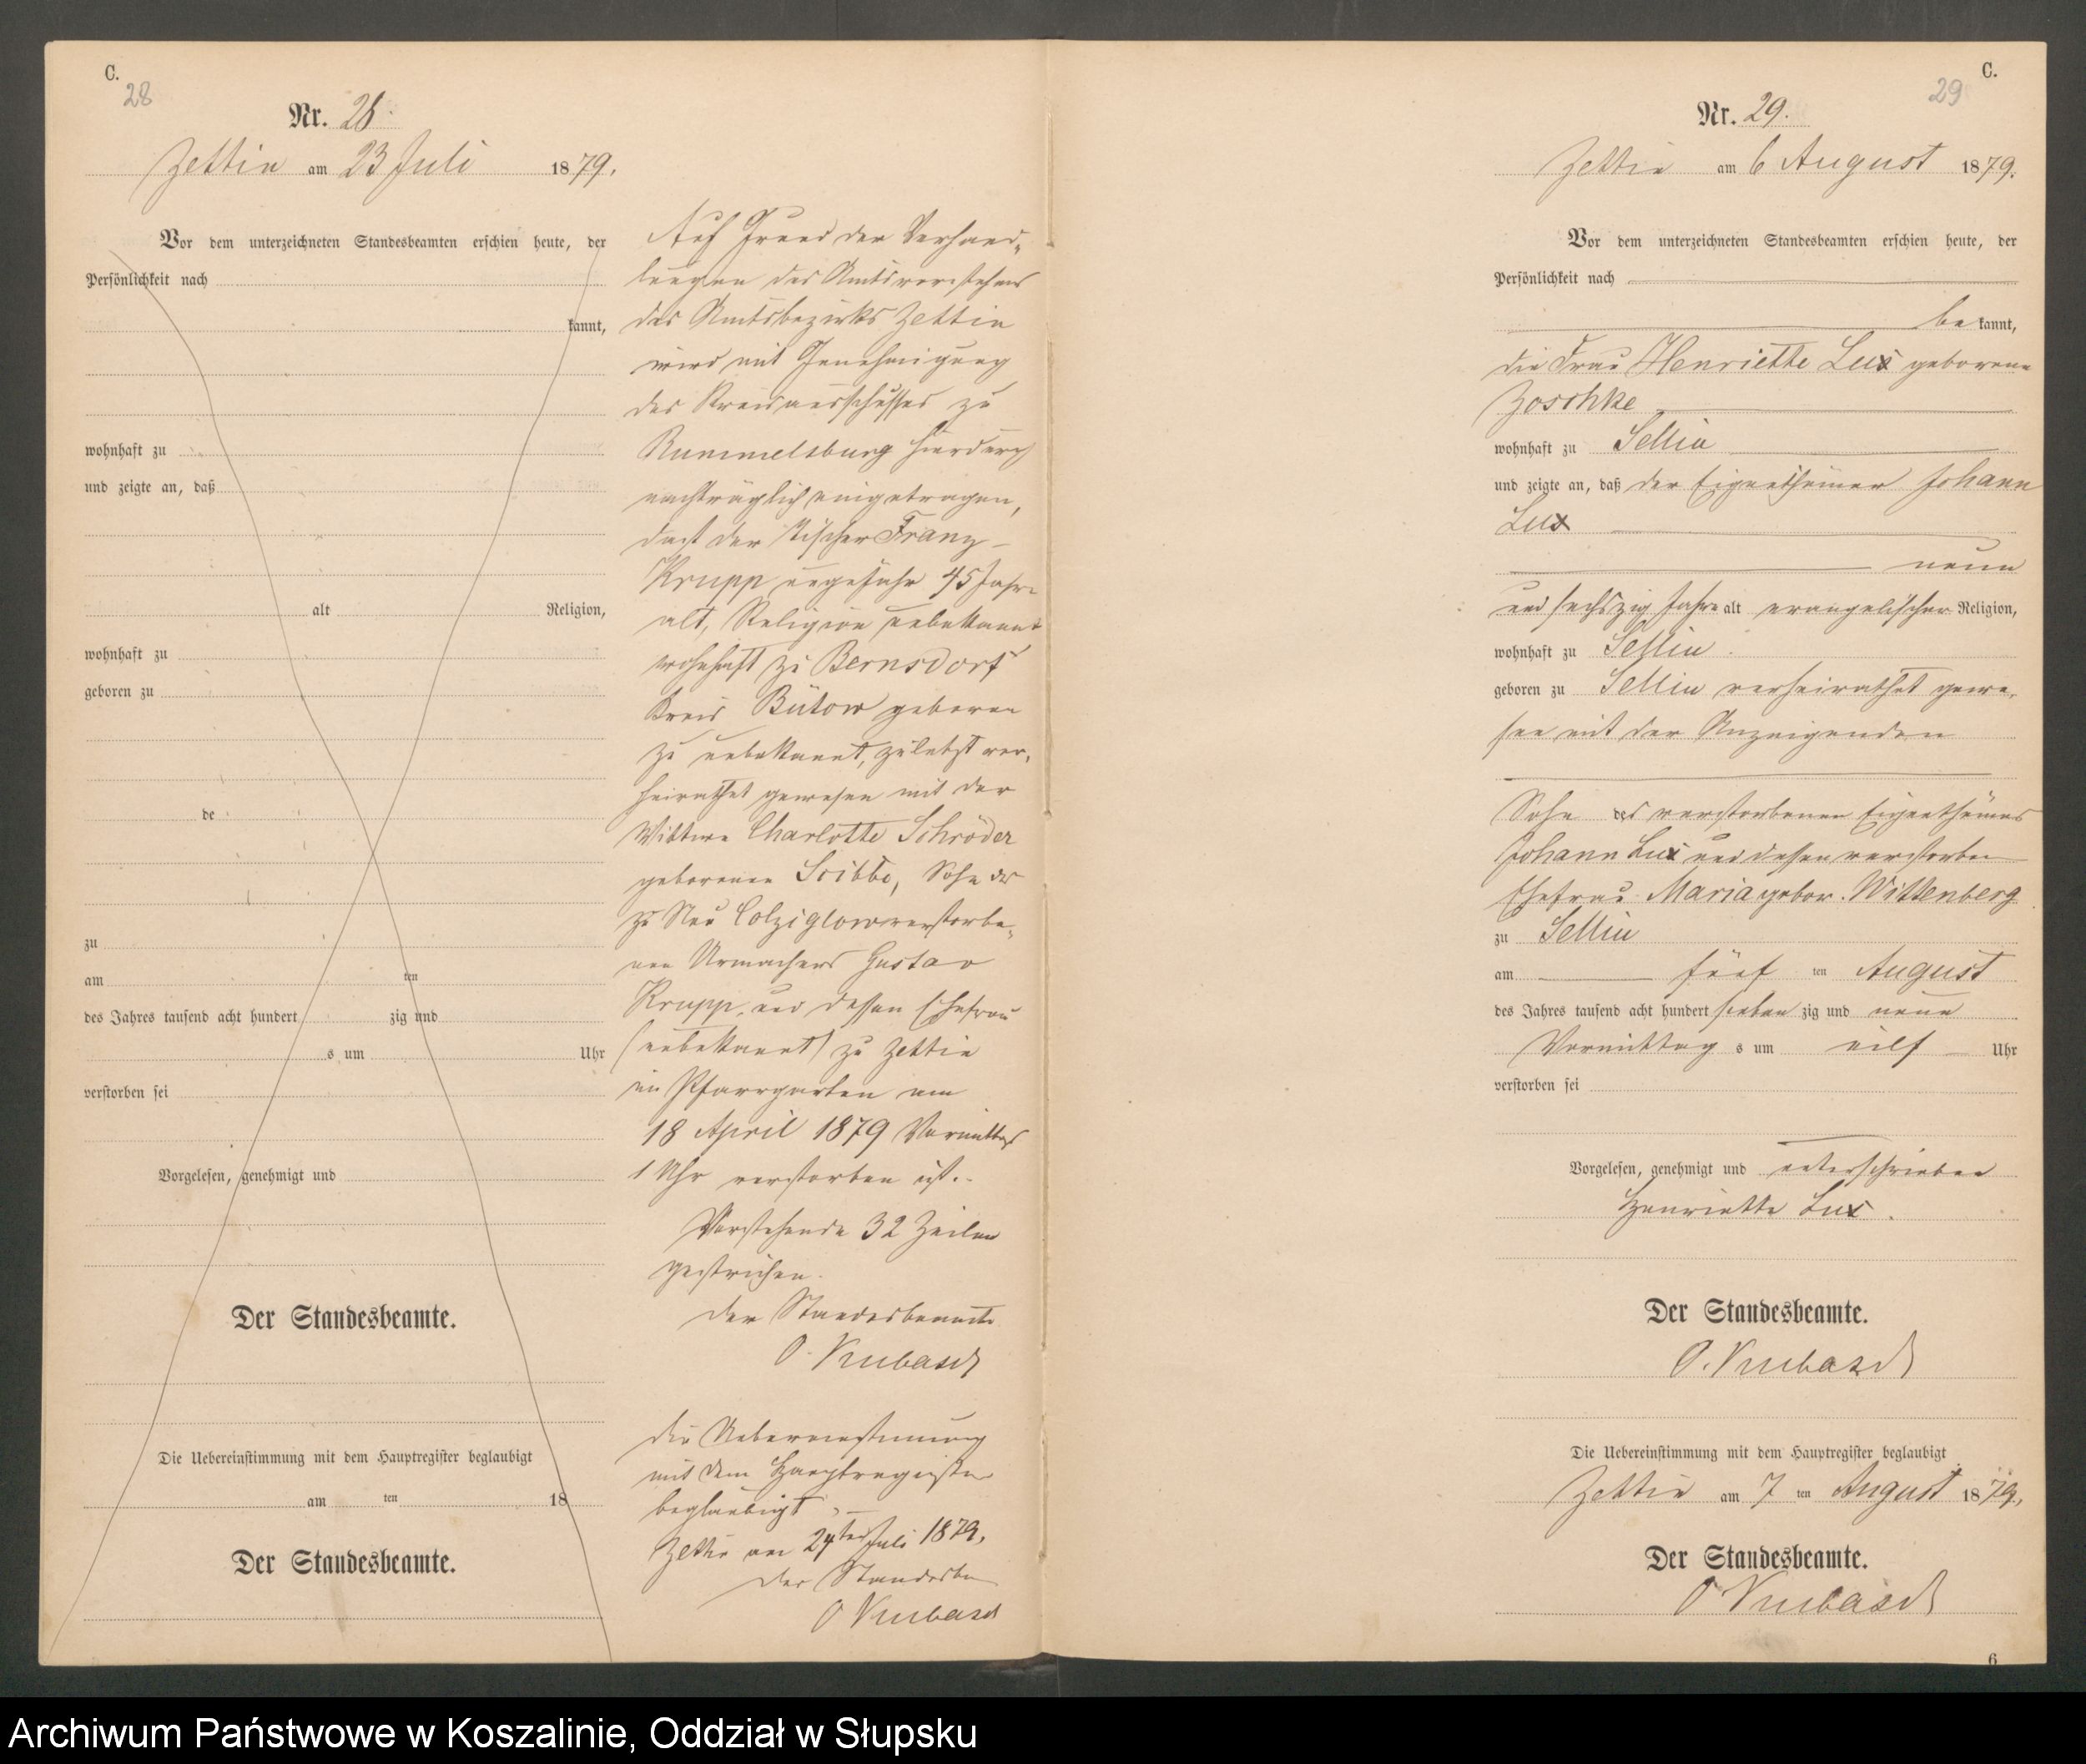 C.
28
Nr. 28.
Zettin am 23 Juli 1879.
Vor dem unterzeichneten Standesbeamten erschien heute, der
Persönlichkeit nach
kannt,
wohnhaft zu
und zeigte an, daß
alt Religion,
wohnhaft zu
geboren zu
de
zu
am ten
des Jahres tausend acht hundert zig und
s um Uhr
verstorben sei
Vorgelesen, genehmigt und
Der Standesbeamte.
Die Uebereinstimmung mit dem Hauptregister beglaubigt
am ten 18
Der Standesbeamte.
Auf Grund der Verhand-
lungen des Amtsvorstehers
des Amtsbezirks Zettin
wird mit Genehmigung
des Kreisausschusses zu
Rummelsburg hierdurch
nachträglich eingetragen,
daß der Tischer Franz
Krupp ungefähr 45 Jahre
alt, Religion unbekannt
wohnhaft zu Bernsdorf
Kreis Bütow geboren
zu unbekannt, zuletzt ver-
heirathet gewesen mit der
Wittwe Charlotte Schröder
geborenen Scibbe, Sohn des
zu Neu Colziglow verstorbe-
nen Urmachers Gustav
Krupp, und dessen Ehefrau
(unbekannt) zu Zettin
im Pfarrgarten am
18 April 1879 Vormittags
1 Uhr verstorben ist.
Vorstehende 32 Zeilen
gestrichen.
Der Standesbeamte
O. Kubasch
Die Uebereinstimmung
mit dem Hauptregister
beglaubigt
Zettin am 24ten Juli 1879.
Der Standesbe
O Kubasch
C.
29
Nr. 29.
Zettin am 6 August 1879.
Vor dem unterzeichneten Standesbeamten erschien heute, der
Persönlichkeit nach
be kannt,
die Frau Henriette Lux geborene
Zoschke
wohnhaft zu Sellin
und zeigte an, daß der Eigenthümer Johann
Lux
neun
und sechszig Jahre alt evangelischer Religion,
wohnhaft zu Sellin
geboren zu Sellin verheirathet gewe-
sen mit der Anzeigenden
Sohn des verstorbenen Eigenthümers
Johann Lux und dessen verstorben
Ehefrau Maria gebor. Wittenberg
zu Sellin
am fünf ten August
des Jahres tausend acht hundert sieben zig und neun
Vormittag s um eilf Uhr
verstorben sei
Vorgelesen, genehmigt und unterschrieben
Henriette Lux.
Der Standesbeamte.
O. Kubasch
Die Uebereinstimmung mit dem Hauptregister beglaubigt
Zettin am 7 ten August 1879.
Der Standesbeamte.
O Kubasch
6
Archiwum Państwowe w Koszalinie, Oddział w Słupsku